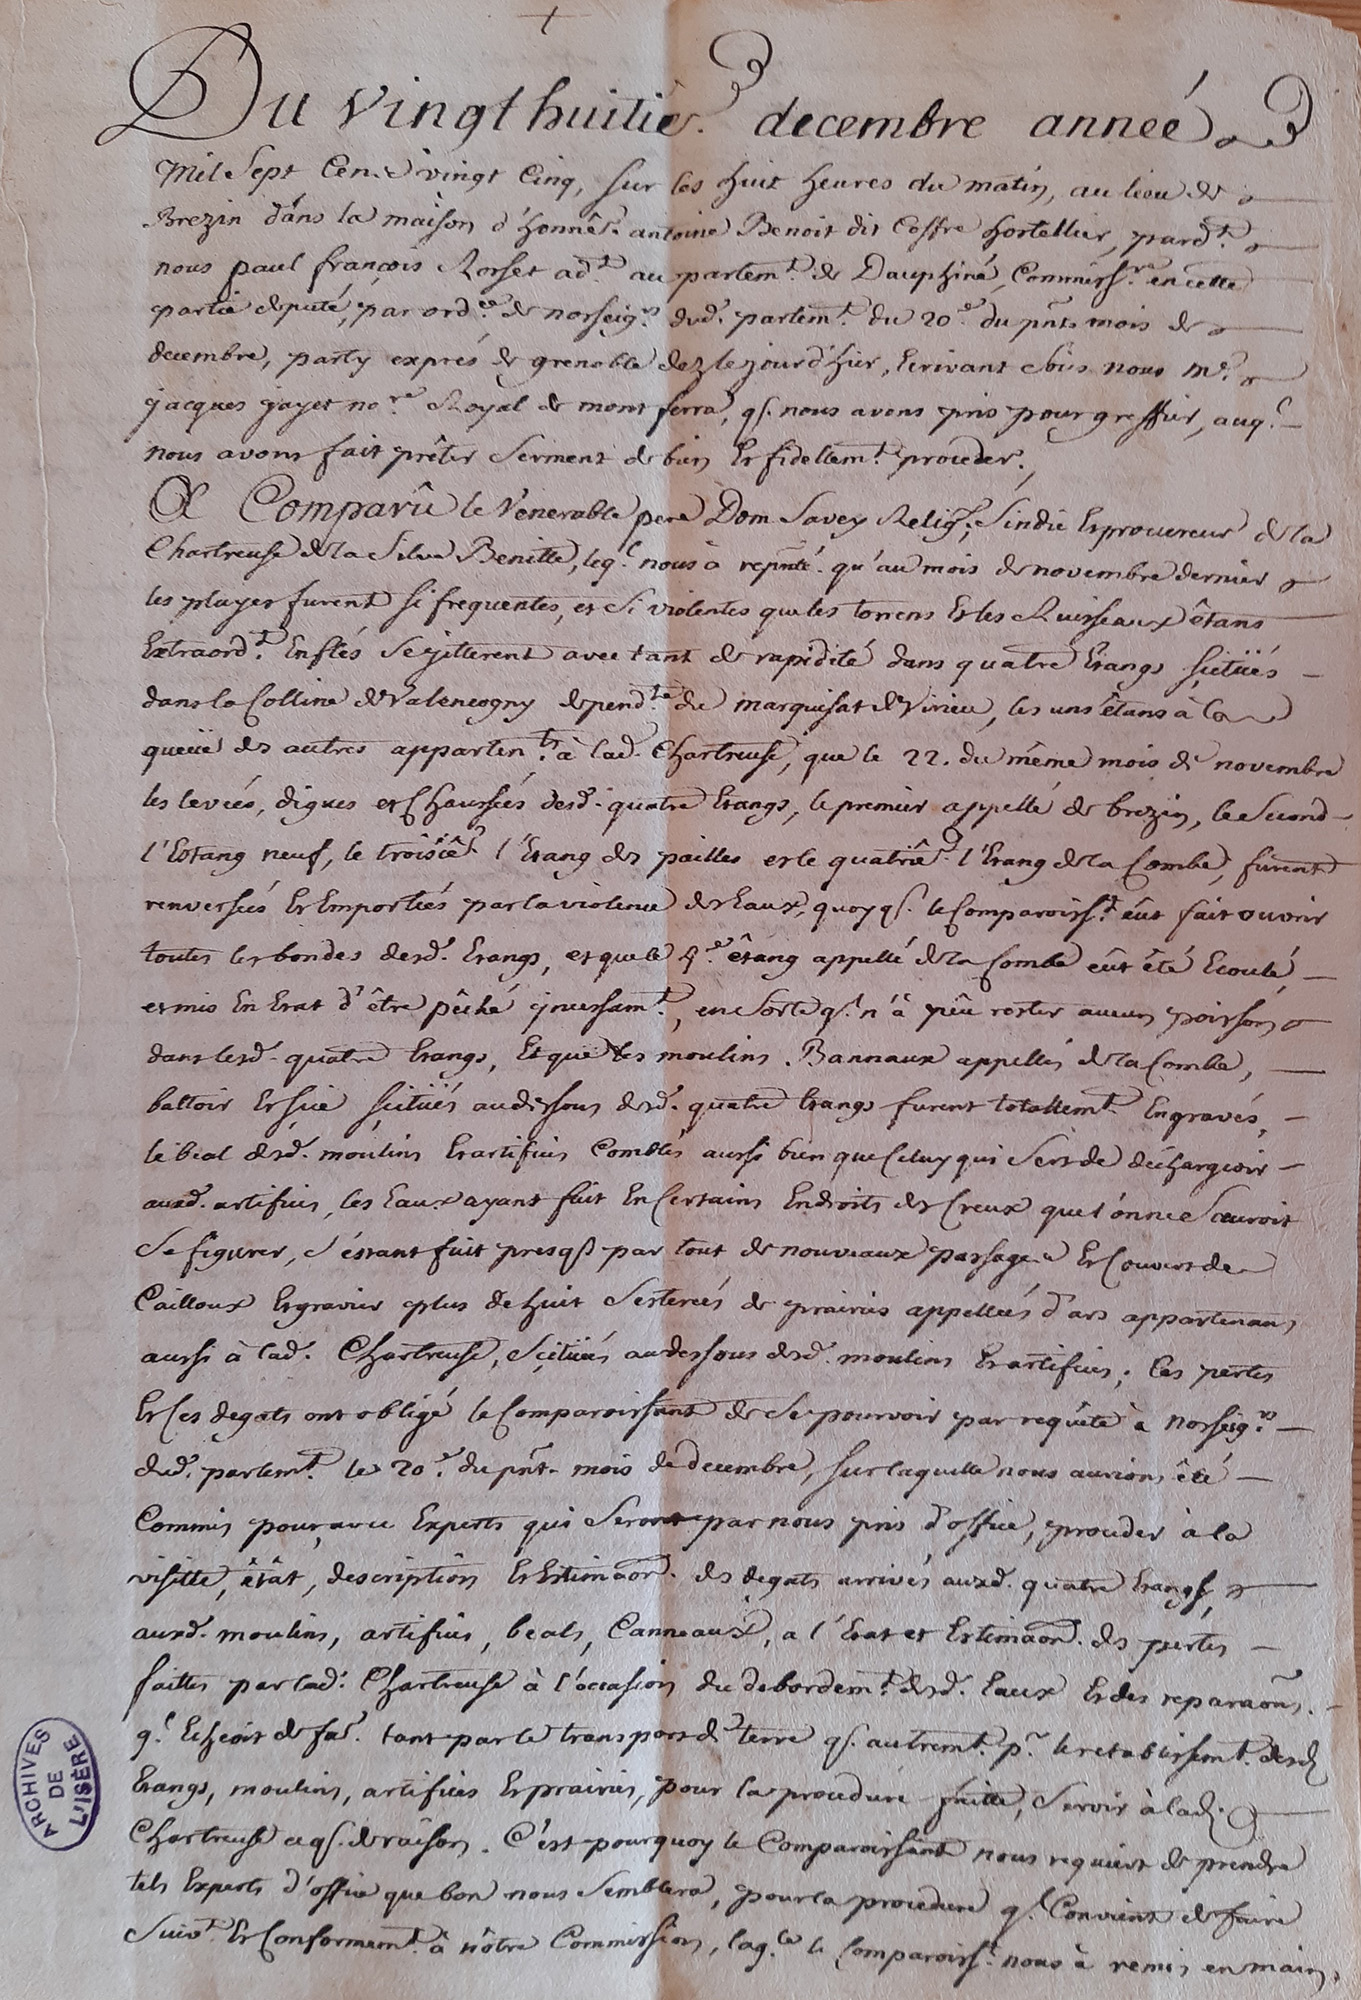 Du vingt huitie.e decembre année
Mil Sept Cent vingt Cinq, sur les huit heures du matin, au lieu de
Brezin dans la maison d'honnê.e antoine Benoit dit Coffre hostellier, pard.t
nous paul françois Rosset ad.t au parlem.t de Dauphiné, Commiss.re en cette
partie deputé, par ord.ce de nosseig.rs dud. parlem.t du 20.e du pnt. mois de
decembre, party exprés de grenoble dez le jourd'hier, Ecrivant sous nous m.e
jacques jayet no.re Royal de mont ferra, q. nous avons pris pour greffier, auq.l
nous avons fait prêter Serment de bien Et fidellem.t proceder.
A Comparû le Venerable pere Dom Savey Relig., Sindic Et procureur de la
Chartreuse de la Silve Benitte, leq.l nous à repnté. qu'au mois de novembre dernier
les playes furent si frequentes, et Si violentes que les torrens Et les Ruisseaux êtans
Extraord.t Enflés Se jetterent avec tant de rapidité dans quatre Etangs scitüés
dans la Colline de Valencogny depend.te du marquisat de Virieu, les uns êtans à la
queüe des autres apparten.ts à lad. Chartreuse, que le 22. du même mois de novembre
les levées, digues et Chaussées desd. quatre Etangs, le premier appellé de brezin, le Second
l'Estang neuf, le troisiê.e l'Etang des pailles et le quatriê.e l'Etang de la Combe, furent
renversées Et Emportées par la violence des Eaux, quoy q. le Comparoiss.t eût fait ouvrir
toutes les bondes desd. Etangs, et que le 4.e êtang appellé de la Combe eût êté Ecoulé,
et mis En Etat d'être pêché incessam.t, en Sorte q. n'à pêu rester aucun poisson
dans lesd. quatre Etangs, Et que les moulins Bannaux appellés de la Combe,
battoir Et sie scitüés audessous desd. quatre Etangs furent totallem.t Engravés,
le béal desd. moulins Et artifices Comblés aussi bien que Celuy qui Sert de déchargeoir
auxd. artifices, les Eaux ayant fait En Certains Endroits des Creux que l'on ne Sauroit
Se figurer, S'étant fait presq. par tout de nouveaux passages Et Couvert de
Cailloux Et gravier plus de huit Sesterées de prairies appellées d'ars appartenans
aussi à lad. Chartreuse, Scitüées audessous desd. moulins Et artifices; Ces pertes
Et Ces degats ont obligé le Comparoissant de Se pourvoir par requête à Nosseig.rs
dud. parlem.t le 20.e du pnt. mois de decembre, sur laquelle nous aurions êté
Commis pour avec Experts qui Seront par nous pris d'office, proceder à la
visitte, êtât, description Et Estimaon. des degats arrivés auxd. quatre Etangs,
auxd. moulins, artifices, beals, Canneaux, a l'Etat et Estimaon. des pertes
faittes par lad. Chartreuse à l'occasion du debordem.t desd. Eaux Et des reparaons.
q.l Echeoit de fa.e tant par le transport de terre q. autrem.t p.r le retablissem.t desd.
Etangs, moulins, artifices Et prairies, pour la procedure faitte, Servir à lad.
Chartreuse ce q. de raison. C'est pourquoy le Comparoissant nous requiert de prendre
tels Experts d'office que bon nous Semblera, pour la procedure q.l Convient de faire
Suiv.t Et Conformem.t à nôtre Commission, laq.le le Comparoiss.t nous à remis en main,
ARCHIVES
DE
L'ISÈRE